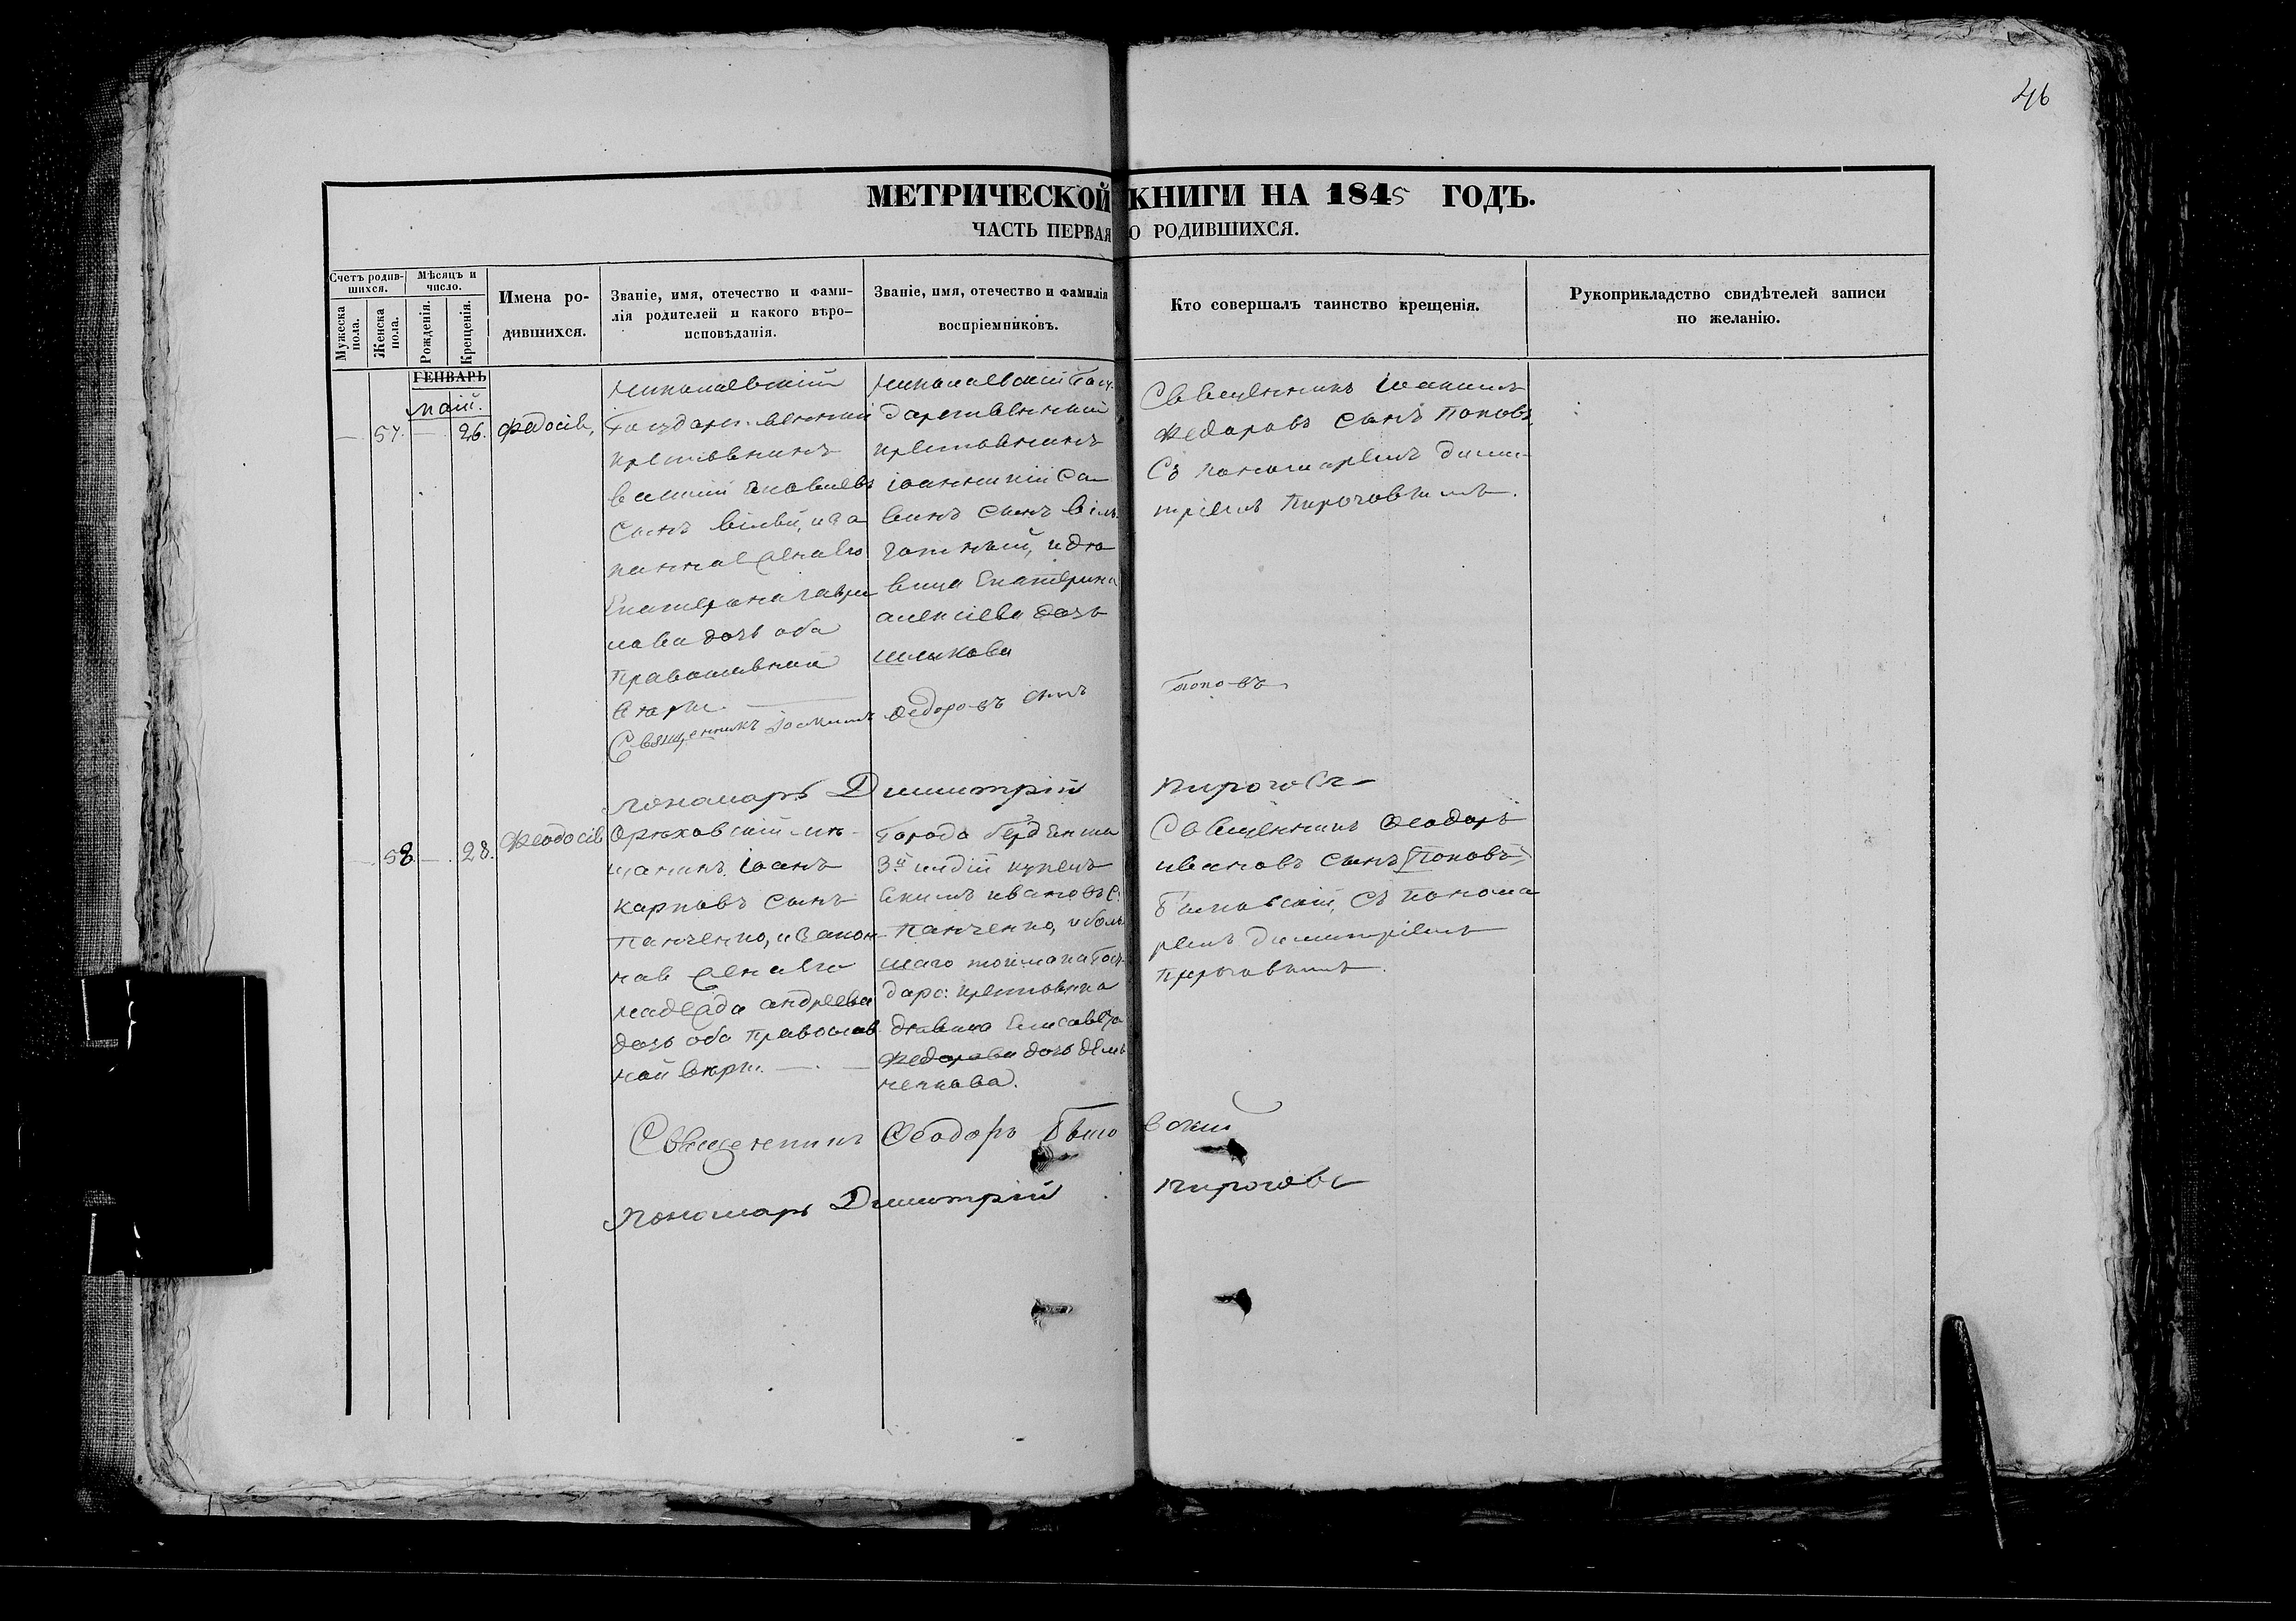 46
МЕТРИЧЕСКОЙ КНИГИ НА 1845 ГОДЪ.
ЧАСТЬ ПЕРВАЯ О РОДИВШИХСЯ.
Счетъ родив-
шихся.
Мужеска пола.
Женска пола.
Мѣсяцъ и
число.
Рожденія.
Крещенія.
Имена ро-
дившихся.
Званіе, имя, отечество и фами-
лія родителей и какого вѣро-
исповѣданія.
Званіе, имя, отечество и фамилія
воспріемниковъ.
Кто совершалъ таинство крещенія.
Рукоприкладство свидѣтелей записи
по желанію.
ГЕНВАРЬ
маій.
— 57. — 26. Федосія,
Николаевскій
Государственный
крестьянинъ
сынъ
Екатерина Гаври
лова дочь оба
Православной
вѣры.
Николаевскій Госу-
дарственный
крестьянинъ
Іоанникій Са
винъ сынъ
и дѣ
вица Екатерина
алексіева дочь
Священникъ Іоакимъ
Федоровъ сынъ Поповъ
Съ пономаремъ Дими-
тріемъ Пироговымъ.
Священникъ Іоакимъ Федоровъ сынъ Поповъ
Пономарь Димитрій Пироговъ
— 58. — 28. Феодосія
Орѣховскій мѣ-
щанинъ Іоанъ
Карповъ сынъ
Панченко, и закон-
ная жена его
Надежда андреева
дочь оба православ
ной вѣры. —
Города Бердянска
3й гилдіи купецъ
Екимъ ивановъ с:
Панченко, и боль
шаго токмака Госу-
дарс: крестьянка
дѣвица Елисавета
Федорова дочь Дем
ченкова.
Священникъ Феодоръ
ивановъ сынъ Поповъ
съ понома
ремъ Димитріемъ
Пироговымъ.
Священникъ Феодоръ
Пономарь Димитрій Пироговъ